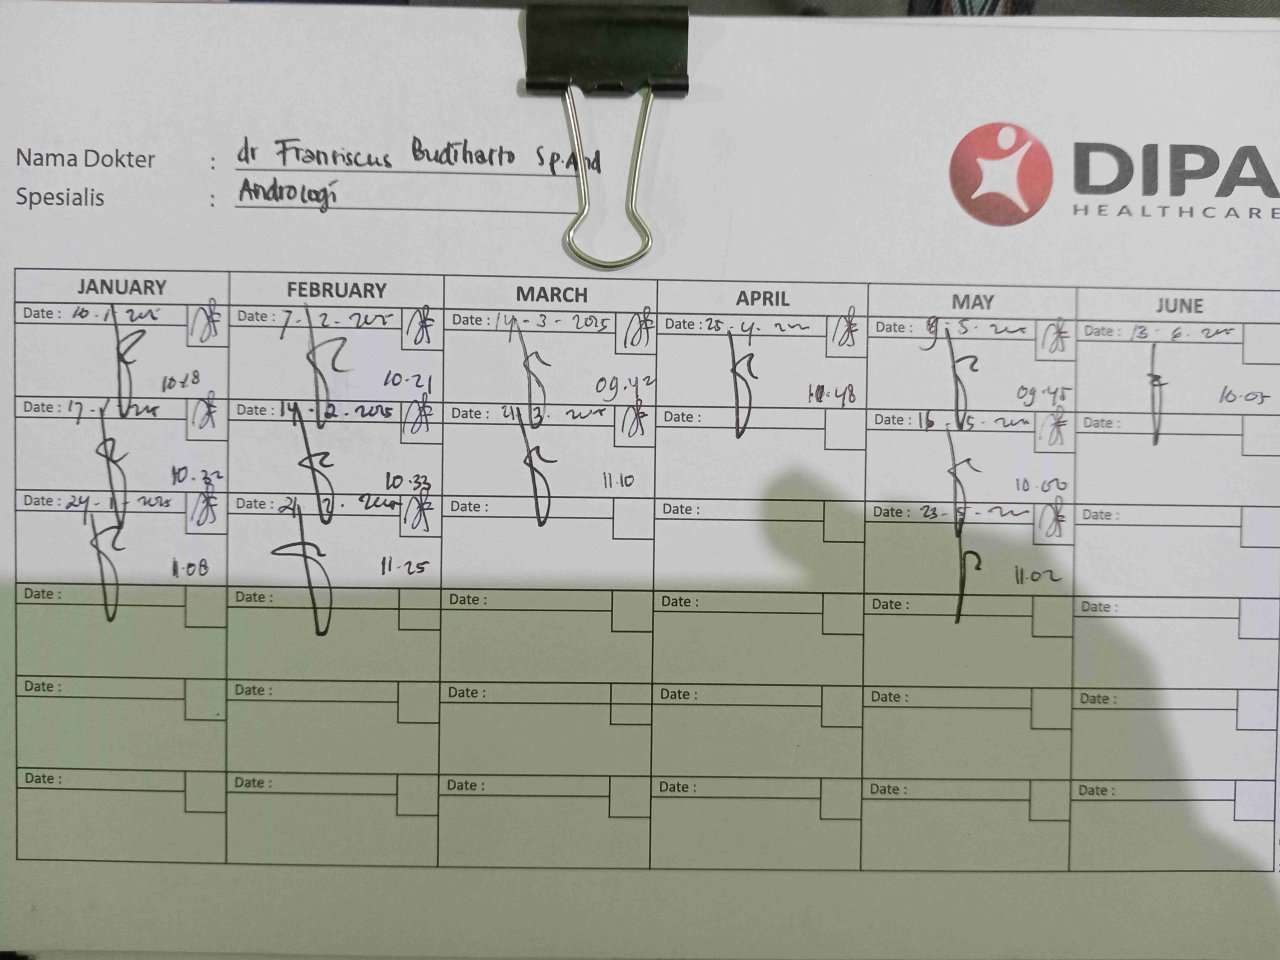 Nama Dokter : dr Franciscus Budiharto Sp.And
Spesialis : Andrologi
DIPA
HEALTHCARE
JANUARY FEBRUARY MARCH APRIL MAY JUNE
Date : 10-1- Date : 7-2- Date : 14-3-2025 Date : 25-4- Date : 9-5- Date : 13-6-
10.18 10.21 09.42 48 09.45 10.05
Date : 17- Date : 14-2-2025 Date : 21 3- Date : Date : 16-5- Date :
10.32 10.33 11.10 10.00
Date : 24-1-2025 Date : 21 2- Date : Date : Date : 23-5- Date :
11.08 11.25 11.02
Date : Date : Date : Date : Date : Date :
Date : Date : Date : Date : Date : Date :
Date : Date : Date : Date : Date : Date :